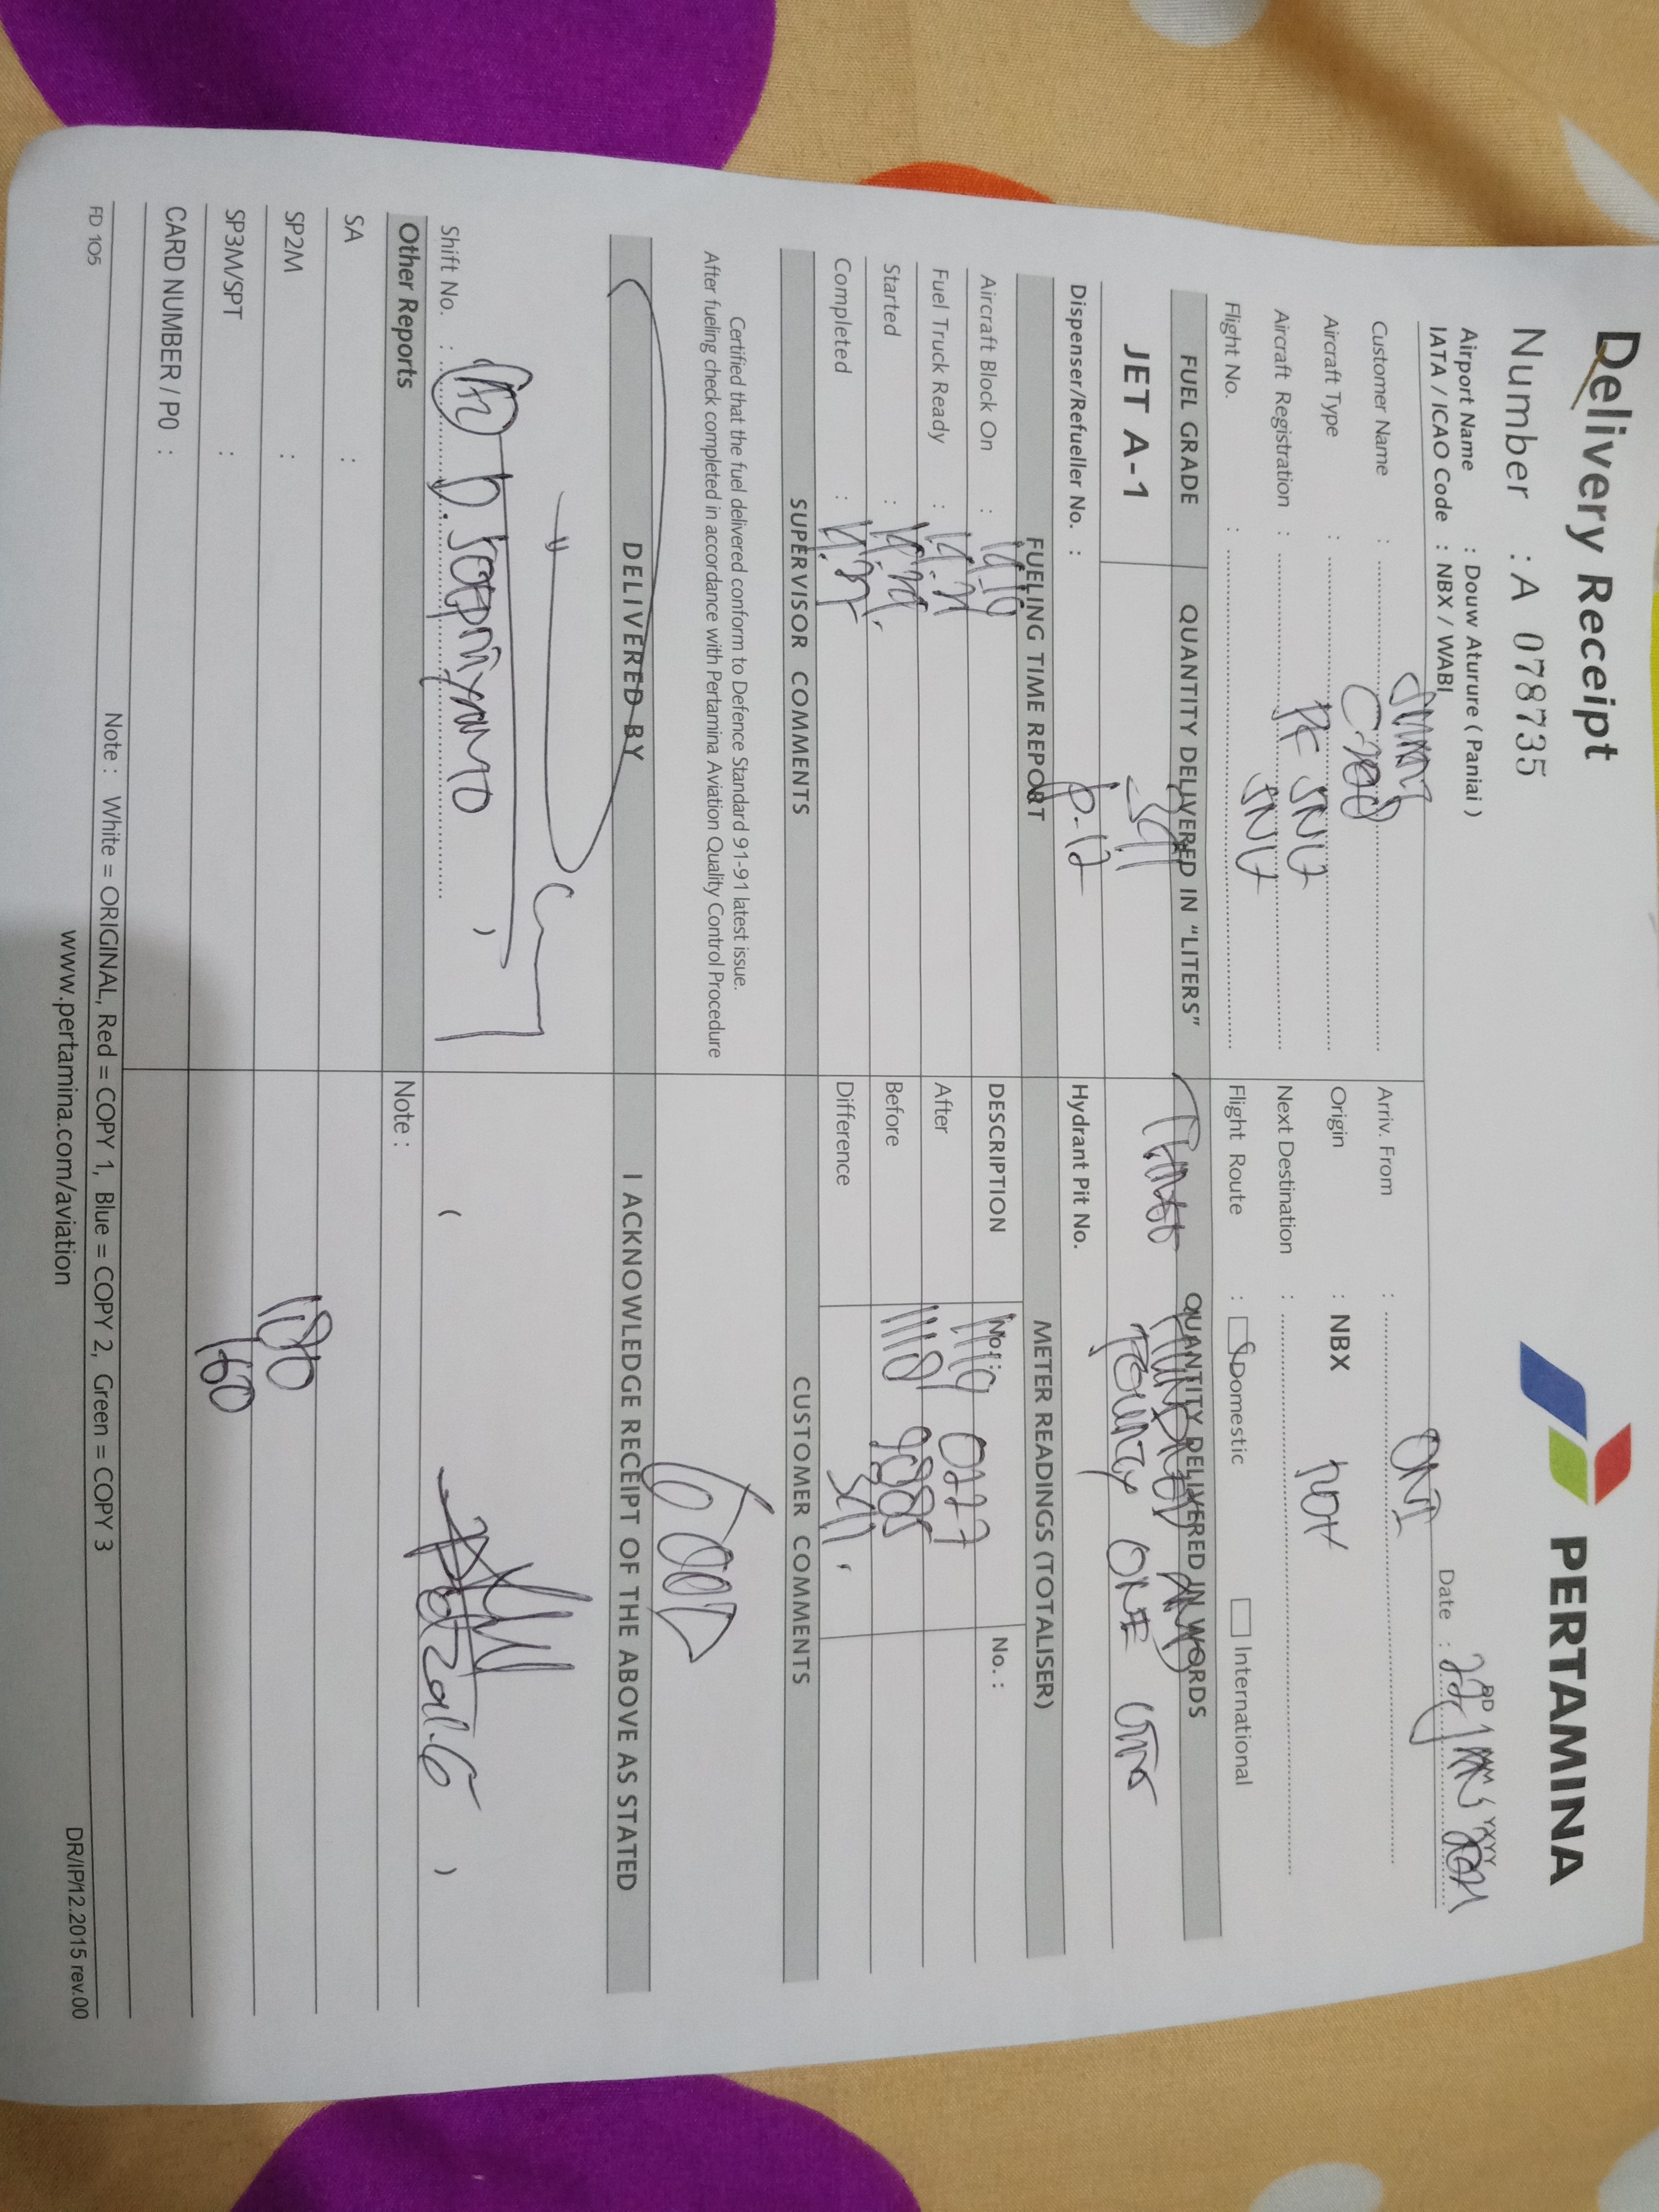 Delivery Receipt
PERTAMINA
Number : A 078735
Airport Name : Douw Aturure ( Paniai )
IATA / ICAO Code : NBX / WABI
Date : DD MM YYYY
Customer Name :
Arriv. From :
Aircraft Type :
Origin : NBX
Aircraft Registration : PK SNV
Next Destination :
Flight No. : SNV
Flight Route : Domestic International
FUEL GRADE
QUANTITY DELIVERED IN "LITERS"
QUANTITY DELIVERED IN WORDS
JET A-1
341
FOURTY ONE
Dispenser/Refueller No. : P-12
Hydrant Pit No.
FUELING TIME REPORT
METER READINGS (TOTALISER)
Aircraft Block On : 14.19
DESCRIPTION No. : No. :
Fuel Truck Ready : 14.21
After 0227
Started :
Before
Completed :
Difference 341
SUPERVISOR COMMENTS
CUSTOMER COMMENTS
Certified that the fuel delivered conform to Defence Standard 91-91 latest issue.
After fueling check completed in accordance with Pertamina Aviation Quality Control Procedure
GOOD
DELIVERED BY
I ACKNOWLEDGE RECEIPT OF THE ABOVE AS STATED
Shift No. :
Other Reports
Note :
SA :
SP2M : 1080
SP3M/SPT : 160
CARD NUMBER / P0 :
Note : White = ORIGINAL, Red = COPY 1, Blue = COPY 2, Green = COPY 3
FD 105
www.pertamina.com/aviation
DR/IP/12.2015 rev.00